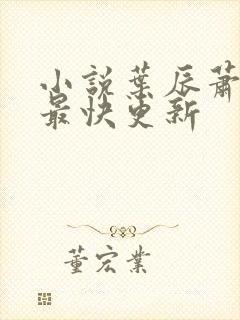 小説葉辰蕭
最快更新
董宏業